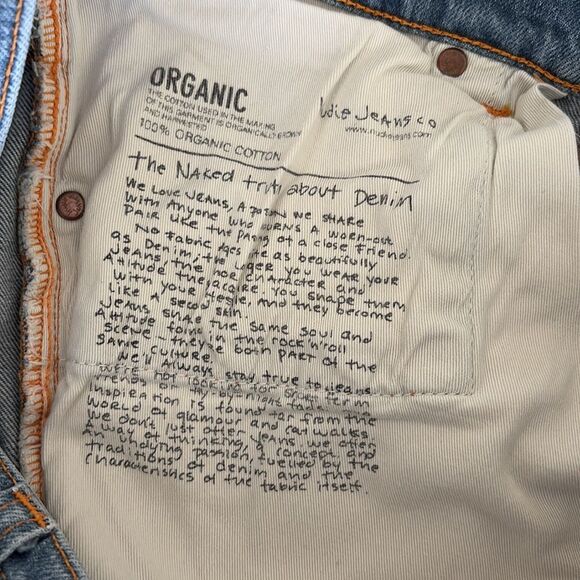 ORGANIC
THE COTTON USED IN THE MAKING
OF THIS GARMENT IS ORGANICALLY GROWN
AND HARVESTED
100% ORGANIC COTTON
udie Jeans co
www.nudiejeans.com
The Naked truth about Denim
We love Jeans, A passion we share
With Anyone who mourns a worn-out
Pair like the passing of a close friend.
No Fabric ages as beautifully
as Denim, the longer you wear your
Jeans the more character and
Attitude they acquire. You shape them
with your lifestyle, and they become
like a second skin.
Jeans share the same soul and
Attitude found in the rock'n'roll
scene - they're both part of the
same culture.
We'll Always stay true to jeans
We're not looking for short term
trends or fly-by-night fads. Our
inspiration is found far from the
world of glamour and catwalks.
We don't just offer jeans, we offer
A way of thinking, a concept and
an undying passion, fuelled by the
traditions of denim and the
characteristics of the fabric itself.